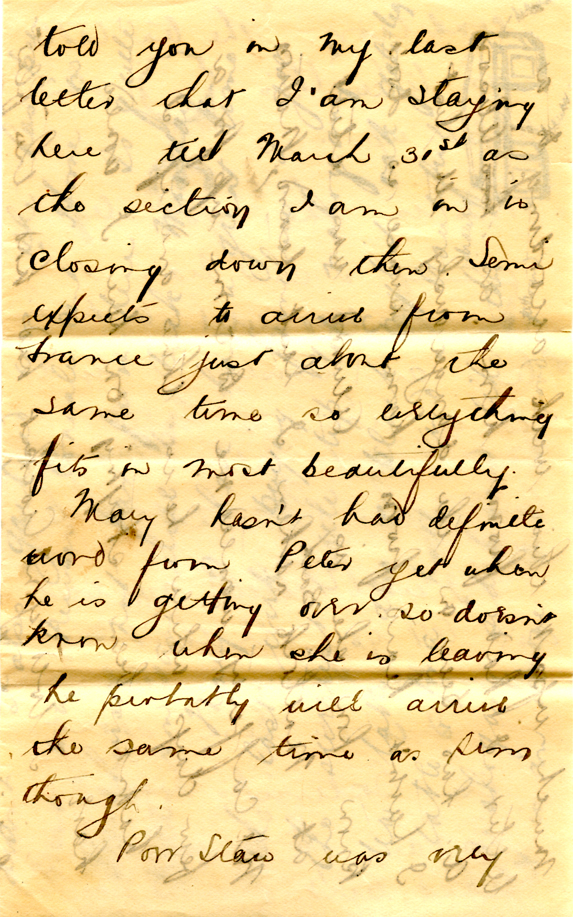 told you in my last
letter that I am staying
here till March 31st as
the section I am in is
closing down then.
expects to arrive from
France just about the
same time so everything
fits in most beautifully.
Mary hasn't had definite
word from Peter yet when
he is getting over so doesn't
know when she is leaving
he probably will arrive
the same time as
though.
was very